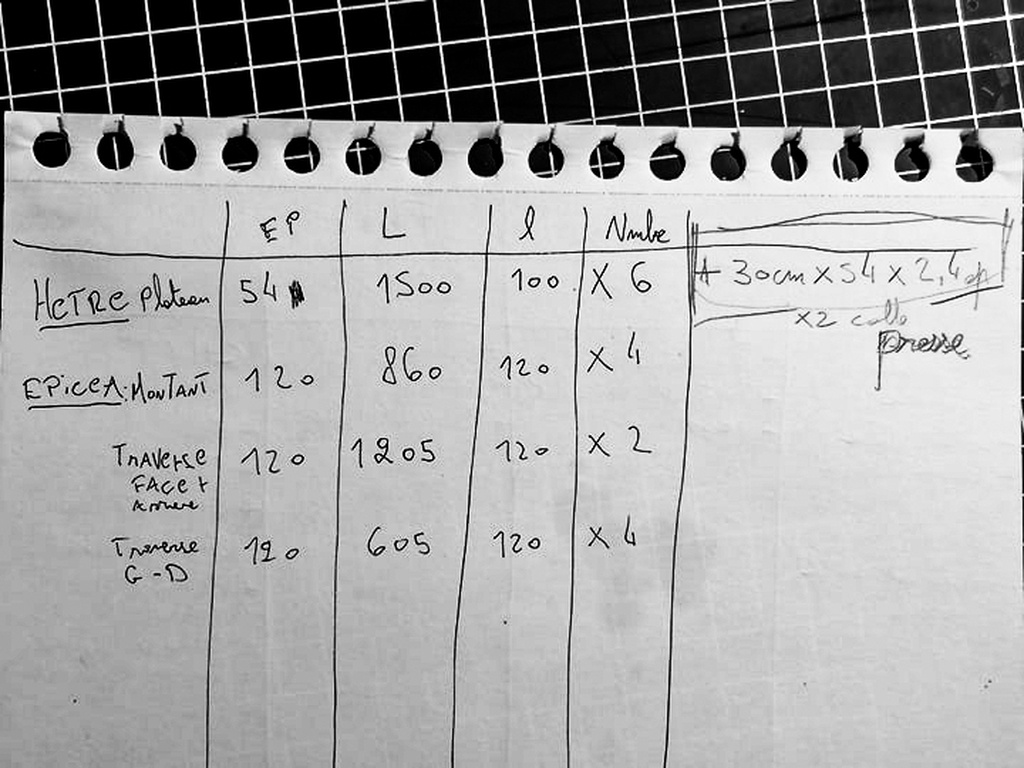 EP L l Nmbre
HETRE Plateau 54 1500 100 X 6
+ 30cm x 54 x 2,4 ep
x2 calle
presse
EPICEA: MONTANT 120 860 120 X 4
TrAVerse 120 1205 120 X 2
FACE +
Arriere
Traverse 120 605 120 X 4
G - D